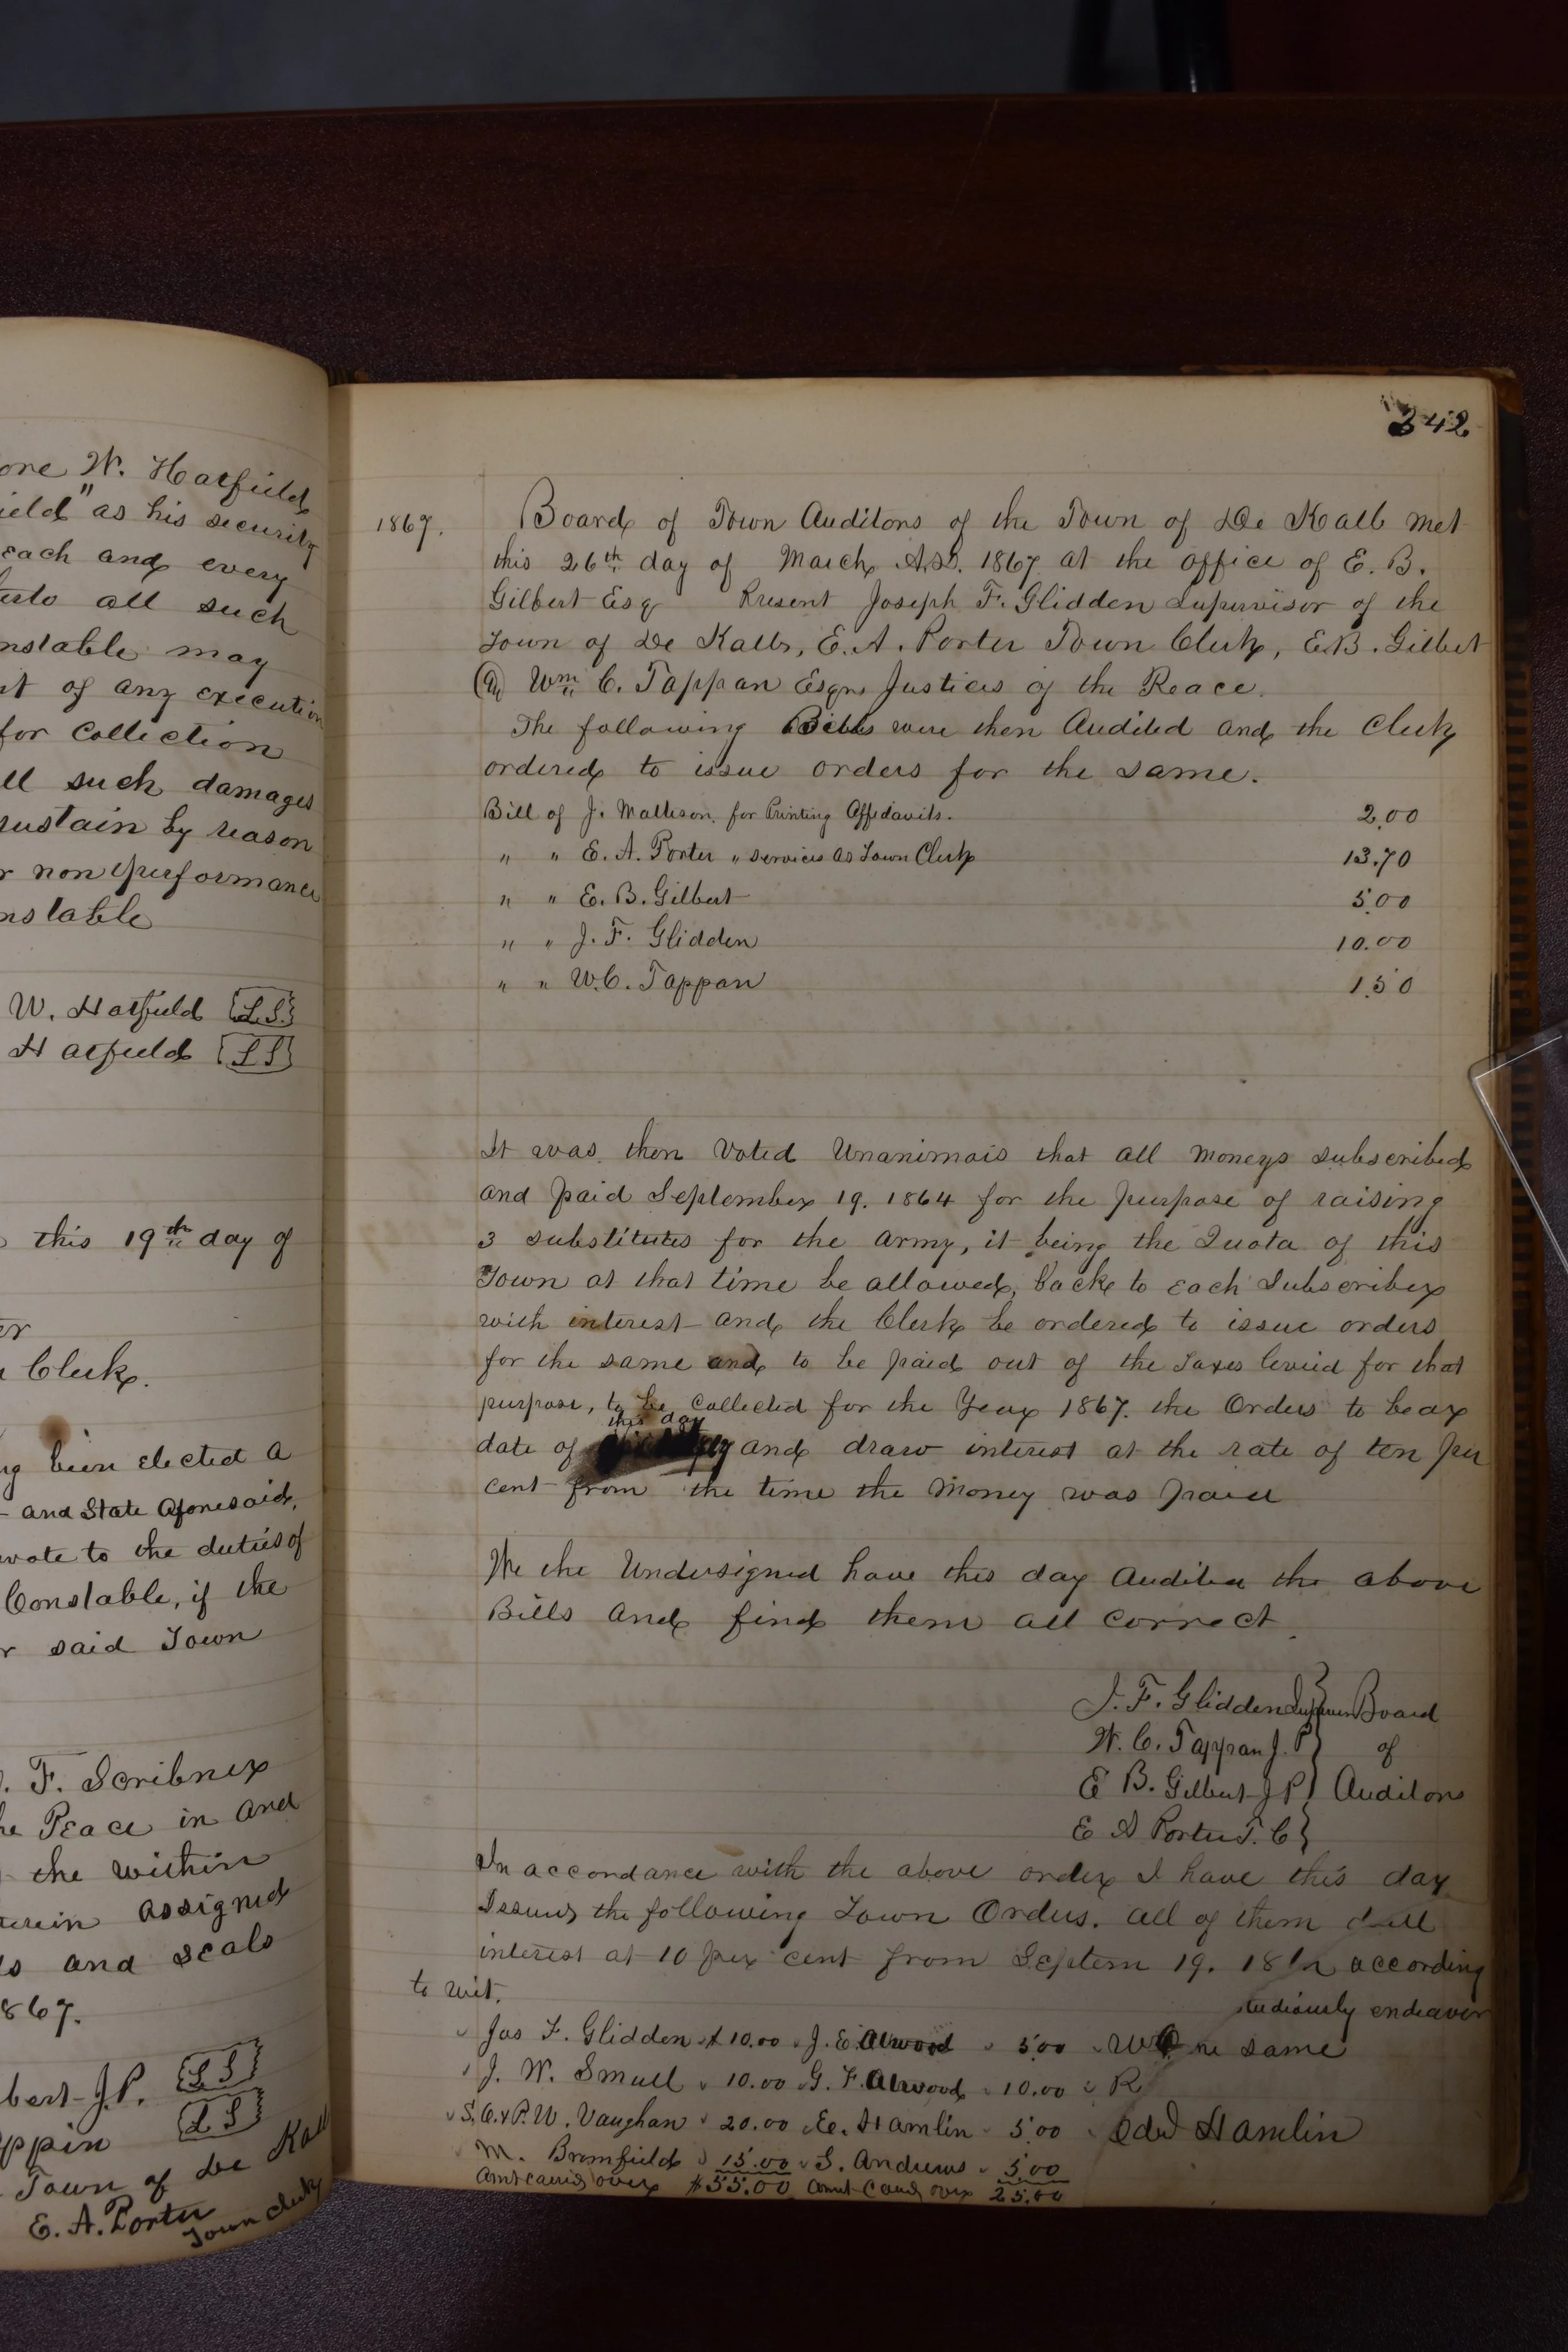 W. Hatfield
as his security
each and every
all such
may
of any execution
for collection
such damages
by reason
non performance
W. Hatfield [L.S.]
Hatfield [L S]
this 19th day of
Clerk.
been elected a
and State Aforesaid,
to the duties of
Constable, if the
said Town
F. Scribner
Peace in and
the within
assigned
and seals
J.P. [L S]
[L S]
Town of De Kalb
E. A. Porter
Town Clerk
342
1867.
Board of Town Auditors of the Town of De Kalb met
this 26th day of March A.D. 1867 at the office of E. B.
Gilbert Esq Present Joseph F. Glidden Supervisor of the
Town of De Kalb, E. A. Porter Town Clerk, E.B. Gilbert
Wm C. Tappan Esqrs Justices of the Peace.
The following Bills were then Audited and the Clerk
ordered to issue orders for the same.
Bill of J. Matteson. for Printing Affidavits. 2.00
" " E. A. Porter " services as Town Clerk 13.70
" " E. B. Gilbert 5.00
" " J. F. Glidden 10.00
" " W.C. Tappan 1.50
It was then Voted Unanimois that all moneys subscribed
and paid September 19. 1864 for the purpose of raising
3 substitutes for the army, it being the Quota of this
Town at that time be allowed, back to each Subscriber
with interest and the Clerk be ordered to issue orders
for the same and to be paid out of the Taxes levied for that
purpose, to be collected for the Year 1867. the Orders to bear
this day
date of and draw interest at the rate of ten per
cent from the time the money was paid
We the Undersigned have this day Audited the above
Bills and find them all correct.
J. F. Glidden Board
W. C. Tappan J. P of
E B. Gilbert J P Auditors
E A Porter T. C
In accordance with the above order I have this day
Issued the following Town Orders. all of them
interest at 10 per cent from Septem 19. according
to wit. endeavor
Jos F. Glidden $10.00 J. E. Atwood 5.00 same
J. W. Smull 10.00 G. F. Atwood 10.00 R
S. C. & P. W. Vaughan 20.00 E. Hamlin 5.00 Hamlin
M. Bromfield 15.00 S. Andrews 5.00
Amt carried over $55.00 Amt Card over 25.00